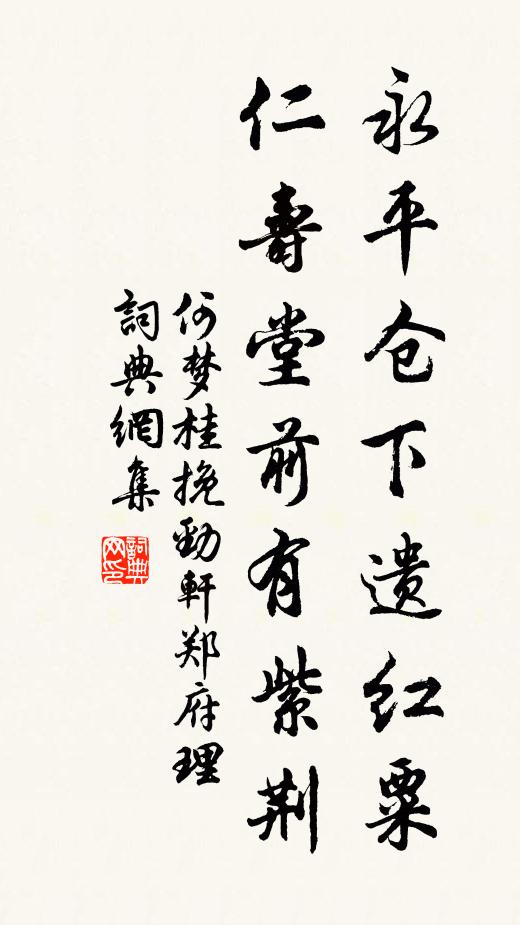 永平仓下遗红粟
仁壽堂前有紫荆
何梦桂挽勁軒郑府理
詞典網集
詞典网印